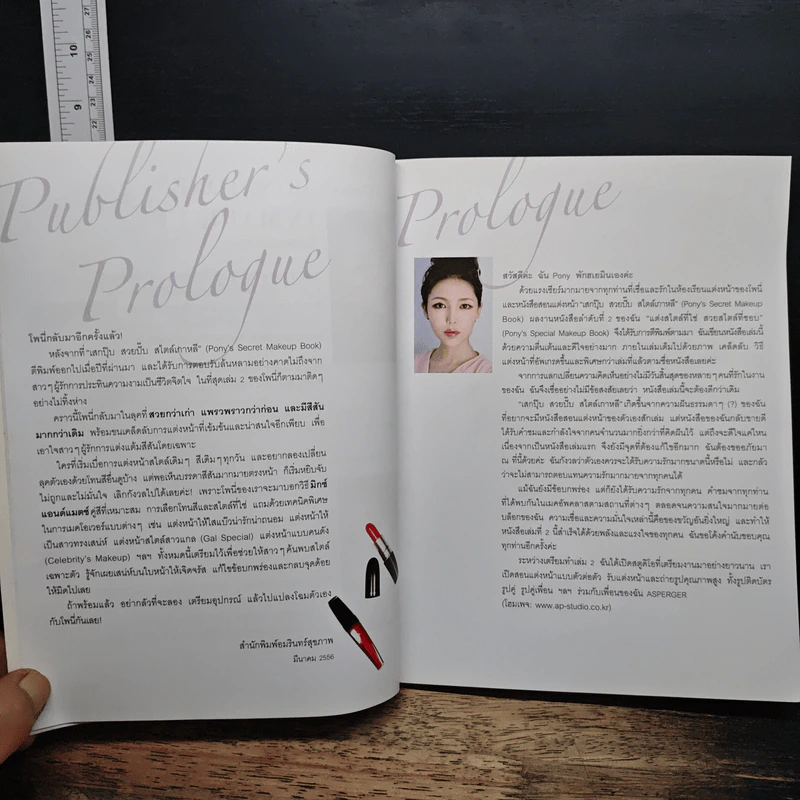 Publisher's
Prologue
โพนี่กลับมาอีกครั้งแล้ว!
หลังจากที่ "เสกปุ๊บ สวยปั๊บ สไตล์เกาหลี" (Pony's Secret Makeup Book)
ตีพิมพ์ออกไปเมื่อปีที่ผ่านมา และได้รับการตอบรับล้นหลามอย่างคาดไม่ถึงจาก
สาวๆ ผู้รักการประทินความงามเป็นชีวิตจิตใจ ในที่สุดเล่ม 2 ของโพนี่ก็ตามมาติดๆ
อย่างไม่ทิ้งห่าง
คราวนี้โพนี่กลับมาในลุคที่สวยกว่าเก่า แพรวพราวกว่าก่อน และมีสีสัน
มากกว่าเดิม พร้อมขนเคล็ดลับการแต่งหน้าที่เข้มข้นและน่าสนใจอีกเพียบ เพื่อ
เอาใจสาวๆ ผู้รักการแต่งแต้มสีสันโดยเฉพาะ
ใครที่เริ่มเบื่อการแต่งหน้าสไตล์เดิมๆ สีเดิมๆ ทุกวัน และอยากลองเปลี่ยน
ลุคตัวเองด้วยโทนสีอื่นดูบ้าง แต่พอเห็นบรรดาสีสันมากมายตรงหน้า ก็เริ่มหยิบจับ
ไม่ถูกและไม่มั่นใจ เลิกกังวลไปได้เลยค่ะ! เพราะโพนี่ของเราจะมาบอกวิธีมิกซ์
แอนด์แมตช์คู่สีที่เหมาะสม การเลือกโทนสีและสไตล์ที่ใช่ แถมด้วยเทคนิคพิเศษ
ในการเมคโอเวอร์แบบต่างๆ เช่น แต่งหน้าให้ใสแบ๊วน่ารักน่าถนอม แต่งหน้าให้
เป็นสาวทรงเสน่ห์ แต่งหน้าสไตล์สาวแกล (Gal Special) แต่งหน้าแบบคนดัง
(Celebrity's Makeup) ฯลฯ ทั้งหมดนี้เตรียมไว้เพื่อช่วยให้สาวๆ ค้นพบสไตล์
เฉพาะตัว รู้จักเผยเสน่ห์บนใบหน้าให้เจิดจรัส แก้ไขข้อบกพร่องและกลบจุดด้อย
ให้มิดไปเลย
ถ้าพร้อมแล้ว อย่ากลัวที่จะลอง เตรียมอุปกรณ์ แล้วไปแปลงโฉมตัวเอง
กับโพนี่กันเลย!
สำนักพิมพ์อมรินทร์สุขภาพ
มีนาคม 2556
Prologue
สวัสดีค่ะ ฉัน Pony พักฮเยมินเองค่ะ
ด้วยแรงเชียร์มากมายจากทุกท่านที่เชื่อและรักในห้องเรียนแต่งหน้าของโพนี่
และหนังสือสอนแต่งหน้า "เสกปุ๊บ สวยปั๊บ สไตล์เกาหลี" (Pony's Secret Makeup
Book) ผลงานหนังสือลำดับที่ 2 ของฉัน "แต่งสไตล์ที่ใช่ สวยสไตล์ที่ชอบ"
(Pony's Special Makeup Book) จึงได้รับการตีพิมพ์ตามมา ฉันเขียนหนังสือเล่มนี้
ด้วยความตื่นเต้นและดีใจอย่างมาก ภายในเล่มเต็มไปด้วยภาพ เคล็ดลับ วิธี
แต่งหน้าที่อัพเกรดขึ้นและพิเศษกว่าเล่มที่แล้วตามชื่อหนังสือเลยค่ะ
จากการแลกเปลี่ยนความคิดเห็นอย่างไม่มีวันสิ้นสุดของหลายๆ คนที่รักในงาน
ของฉัน ฉันจึงเชื่ออย่างไม่มีข้อสงสัยเลยว่า หนังสือเล่มนี้จะต้องดีกว่าเดิม
"เสกปุ๊บ สวยปั๊บ สไตล์เกาหลี" เกิดขึ้นจากความฝันธรรมดาๆ (?) ของฉัน
ที่อยากจะมีหนังสือสอนแต่งหน้าของตัวเองสักเล่ม แต่หนังสือของฉันกลับขายดี
ได้รับคำชมและกำลังใจจากคนจำนวนมากยิ่งกว่าที่คิดฝันไว้ แต่ถึงจะดีใจแค่ไหน
เนื่องจากเป็นหนังสือเล่มแรก จึงยังมีจุดที่ต้องแก้ไขอีกมาก ฉันต้องขออภัยมา
ณ ที่นี้ด้วยค่ะ ฉันกังวลว่าตัวเองควรจะได้รับความรักมากขนาดนี้หรือไม่ และกลัว
ว่าจะไม่สามารถตอบแทนความรักมากมายจากทุกคนได้
แม้ฉันยังมีข้อบกพร่อง แต่ก็ยังได้รับความรักจากทุกคน คำชมจากทุกท่าน
ที่ได้พบกันในเมคอัพคลาสตามสถานที่ต่างๆ ตลอดจนความสนใจมากมายต่อ
บล็อกของฉัน ความเชื่อและความมั่นใจเหล่านี้คือของขวัญอันยิ่งใหญ่ และทำให้
หนังสือเล่มที่ 2 นี้สำเร็จได้ด้วยพลังและแรงใจของทุกคน ฉันขอโค้งคำนับขอบคุณ
ทุกท่านอีกครั้งค่ะ
ระหว่างเตรียมทำเล่ม 2 ฉันได้เปิดสตูดิโอที่เตรียมงานมาอย่างยาวนาน เรา
เปิดสอนแต่งหน้าแบบตัวต่อตัว รับแต่งหน้าและถ่ายรูปคุณภาพสูง ทั้งรูปติดบัตร
รูปคู่ รูปคู่เพื่อน ฯลฯ ร่วมกับเพื่อนของฉัน ASPERGER
(โฮมเพจ: www.ap-studio.co.kr)
27
26
25
24
23
22
10
9